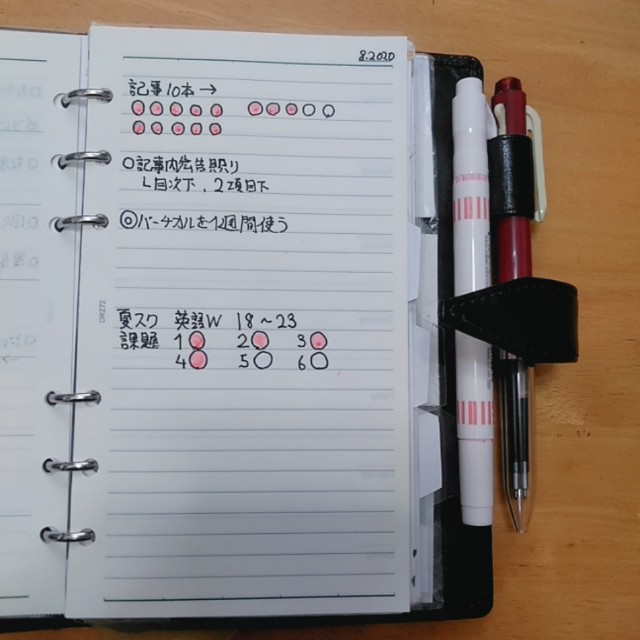 8.2020
記事10本→
○○○○○ ○○○○○
○○○○○
○記事内広告貼り
└目次下、2項目下
◎バーチカルを1週間使う
夏スク 英語W 18〜23
課題 1○ 2○ 3○
4○ 5○ 6○
DR272